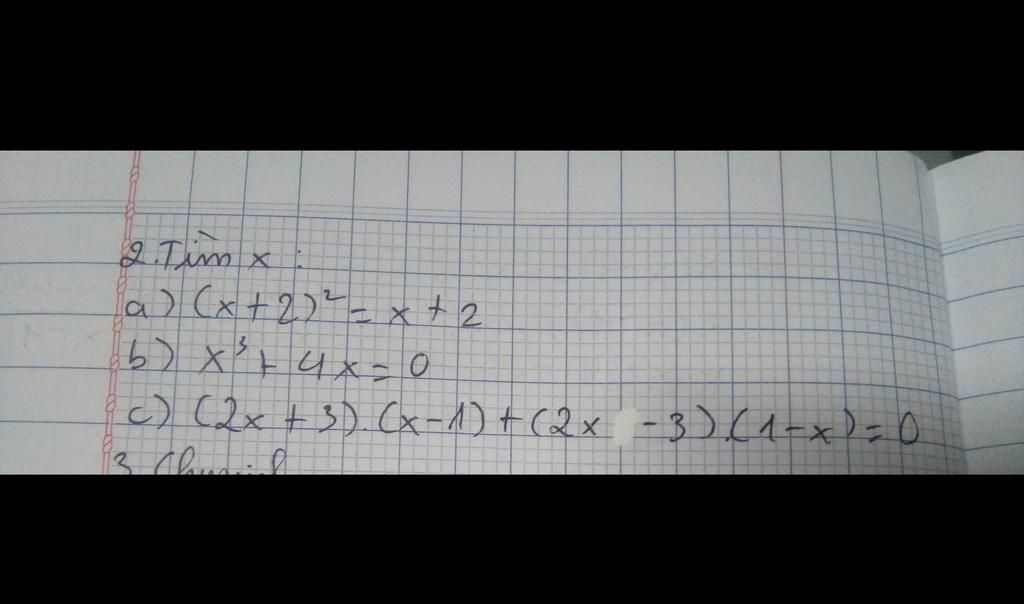 2. Tìm x :
a) (x+2)² = x + 2
b) x³ + 4x = 0
c) (2x + 3).(x-1) + (2x -3).(1-x) = 0
3